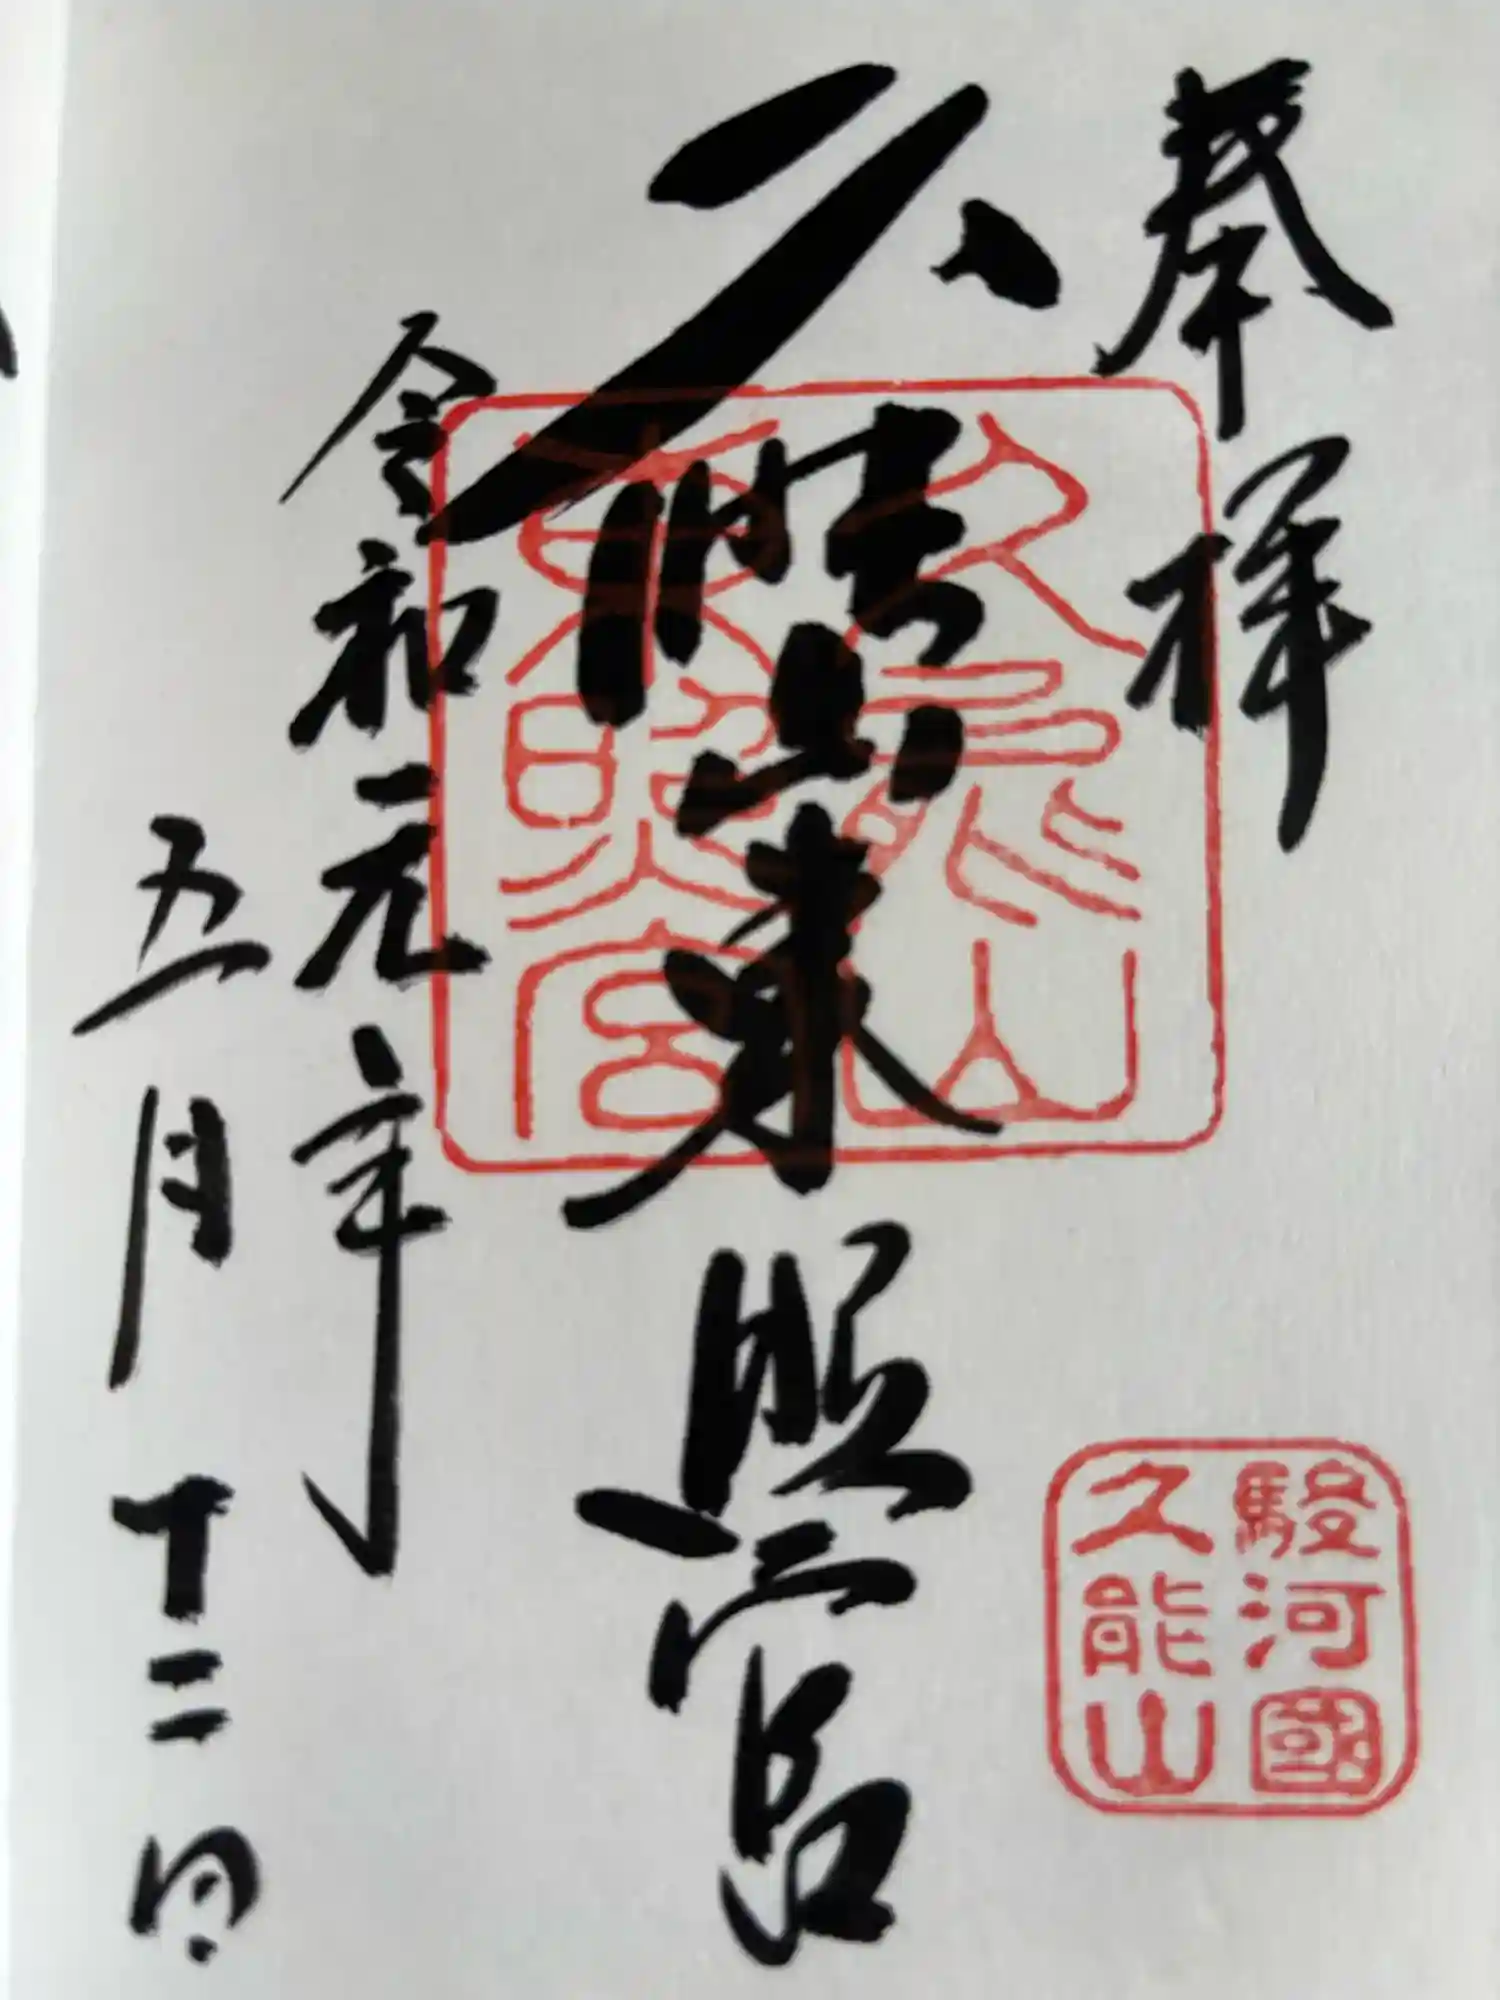 奉拝
久能山東照宮
令和元年
五月十二日
久能山
東照宮
駿河國
久能山